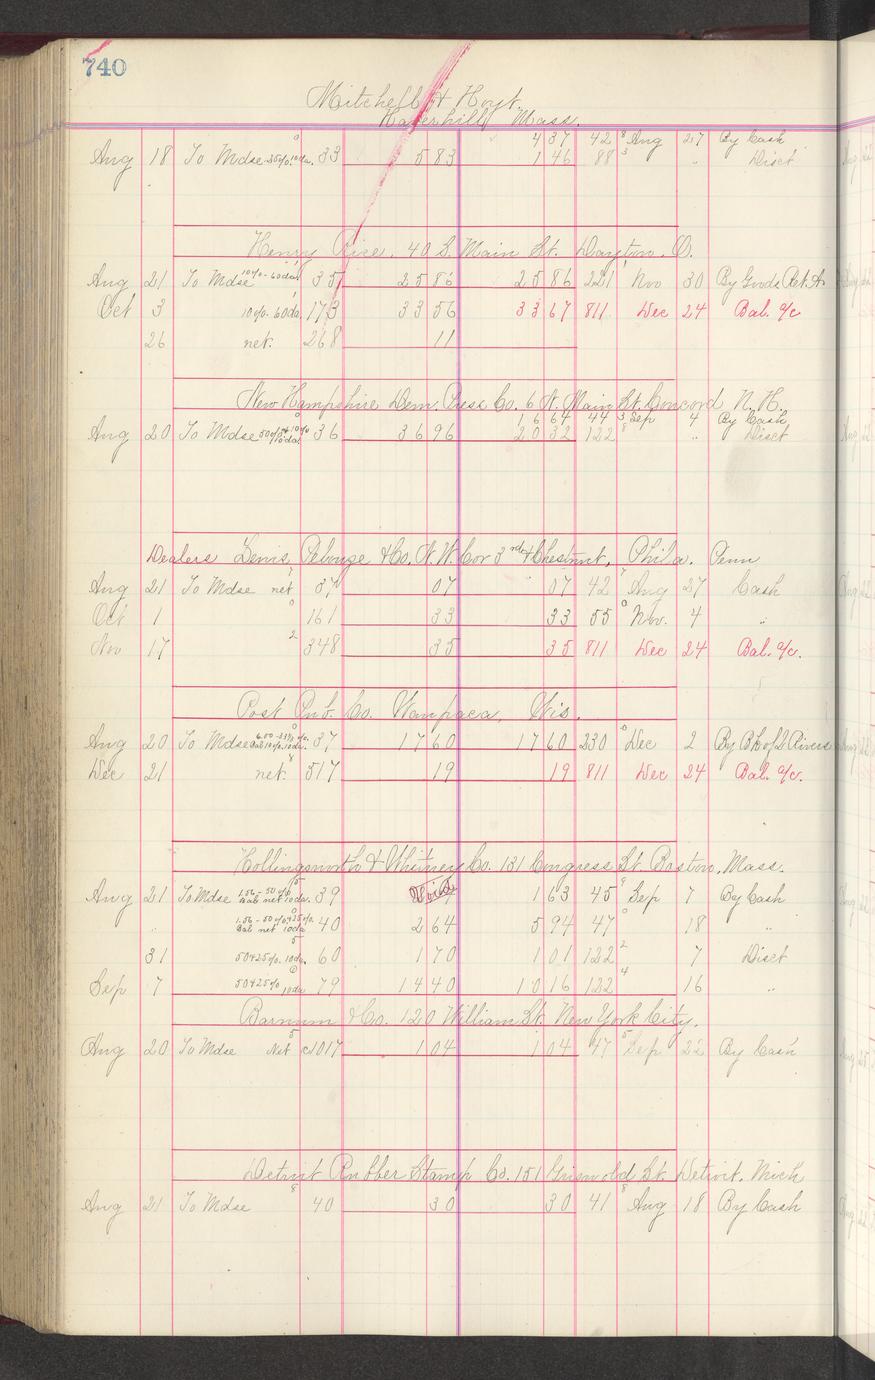 740
Mitchell & Hoyt.
Haverhill, Mass.
4 37 42 8 Aug 27 By Cash
Aug 18 To Mdse 33 5 83 1 46 88 3 " Disct
Henry Rice, 40 S. Main St. Dayton, O.
Aug 21 To Mdse 10% - 60 da 35 25 86 25 86 221 Nov 30 By Goods Ret. A
Oct 3 10% 60 da 173 33 56 33 67 811 Dec 24 Bal. a/c
26 net. 268 11
New Hampshire Dem. Press Co. 6 N. Main St. Concord N. H.
16 64 44 3 Sep 4 By Cash
Aug 20 To Mdse 50% & 10% 10 da. 36 36 96 20 32 122 8 " Disct
Dealers Lewis Pelouze & Co. N.W. Cor 3rd & Chestnut, Phila. Penn
Aug 21 To Mdse net 37 07 07 42 7 Aug 27 Cash
Oct 1 161 33 33 55 0 Nov. 4 "
Nov 17 348 35 35 811 Dec 24 Bal. a/c.
Post Pub. Co. Waupaca, Wis.
Aug 20 To Mdse 6.00 - 33 1/3 % Bal 10% 10 da. 37 17 60 17 60 230 0 Dec 2 By B
Dec 21 net. 317 19 19 811 Dec 24 Bal. a/c.
Hollingsworth & Whitney Co. 131 Congress St. Boston, Mass.
Aug 21 To Mdse 1.56 - 50% Bal net 10 da. 39 Void 1 63 45 9 Sep 7 By Cash
" 1.56 - 50% & 25% Bal net 10 da 40 2 64 5 94 47 0 18 "
31 50 & 25% 10 da. 60 1 70 1 01 122 2 7 Disct
Sep 7 50 & 25% 10 da 79 14 40 10 16 122 4 16 "
Barnum & Co. 120 William St. New York City.
Aug 20 To Mdse Net c/017 1 04 1 04 47 5 Sep 22 By Cash
Detroit Rubber Stamp Co. 151 Griswold St. Detroit. Mich
Aug 21 To Mdse 40 30 30 41 8 Aug 18 By Cash